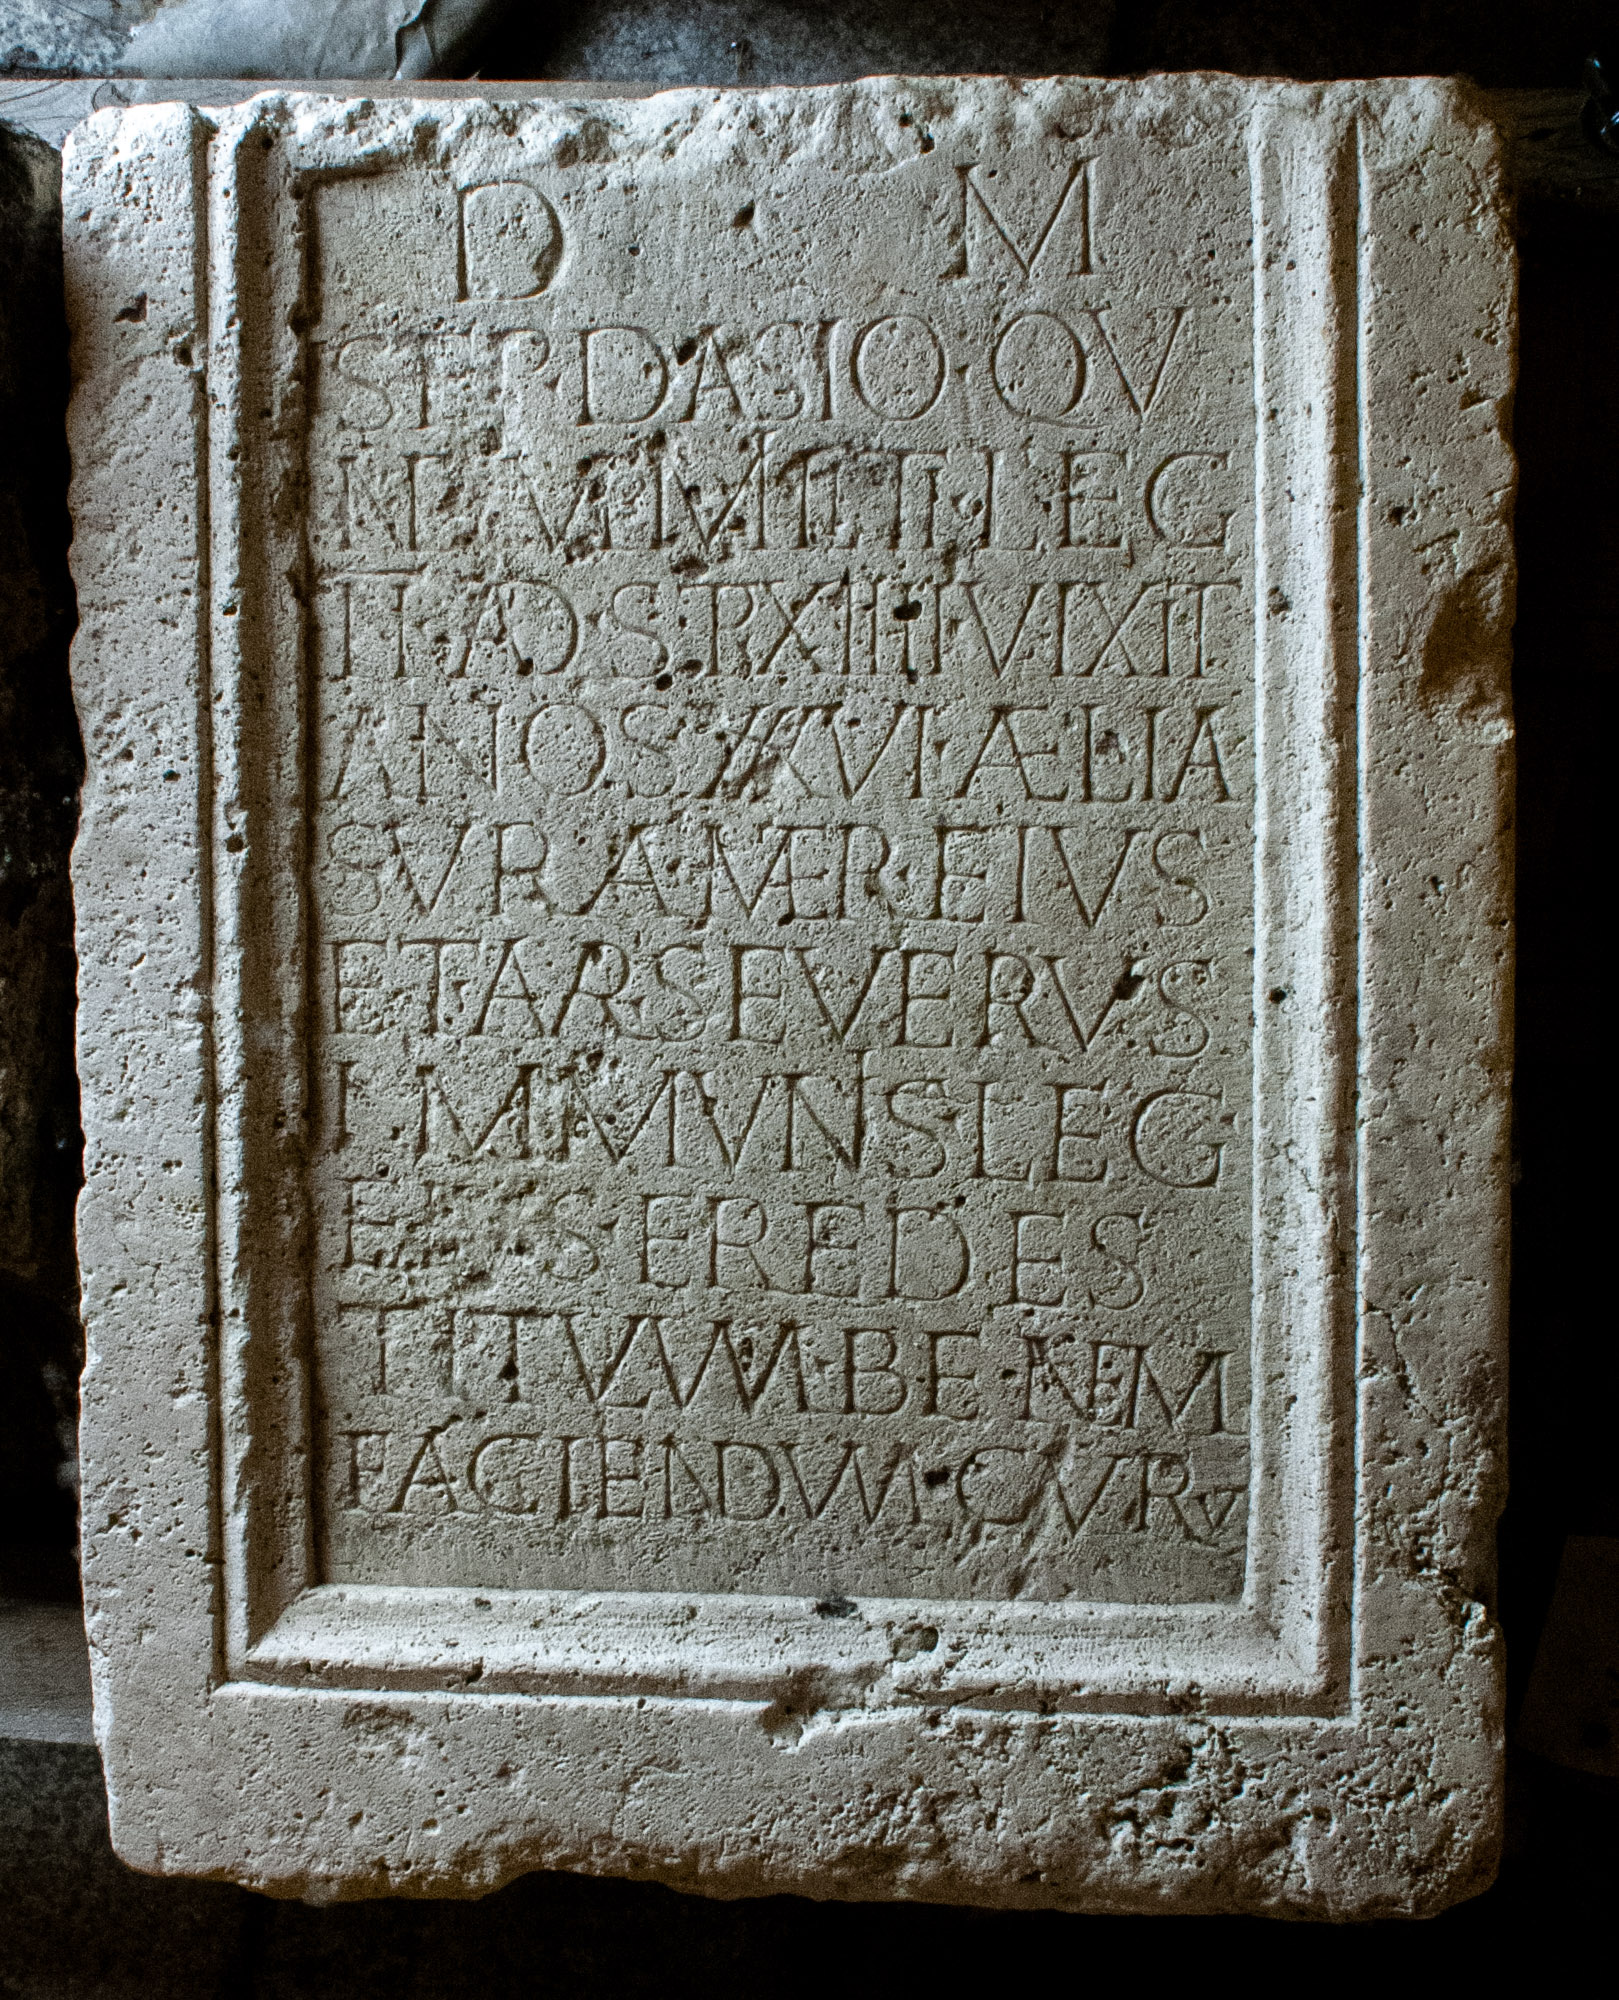 D M
SEP·DASIO·QV
NE VI MILITI LEG
II·AD S·P·XIIII VIXIT
ANOS XXVI·AELIA
SVRA MATER EIVS
ET AR SEVERVS
IMMVNS LEG
EIVS EREDES
TITVLVM·BE·NEM
FACIENDVM·CVRV